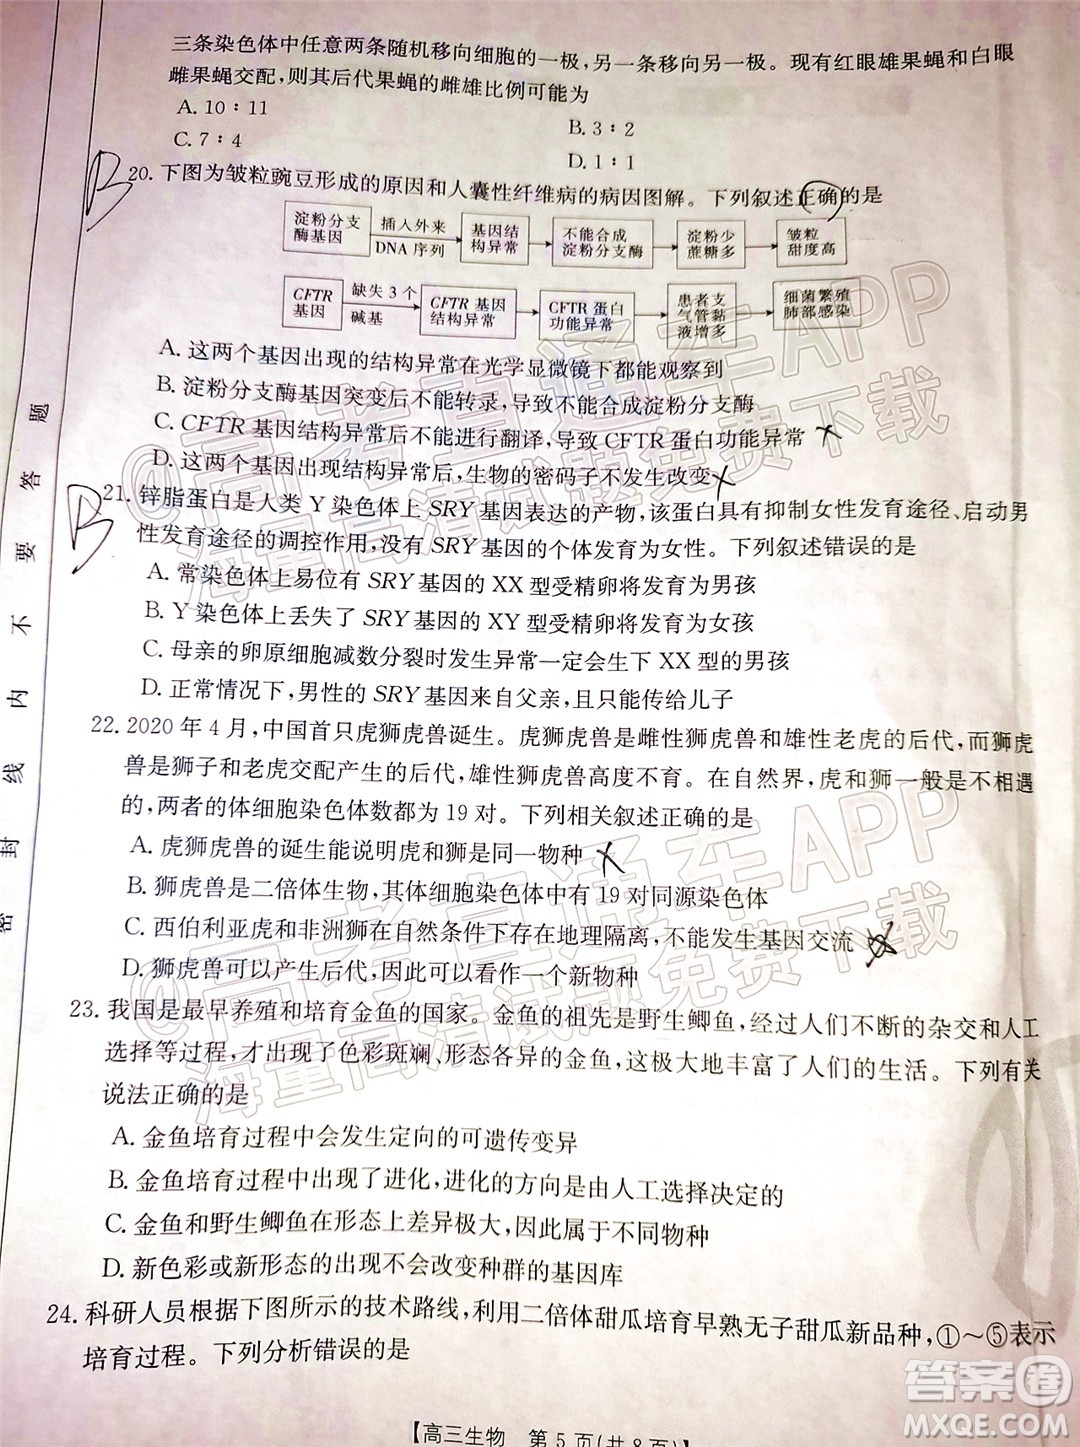 三条染色体中任意两条随机移向细胞的一极，另一条移向另一极。现有红眼雄果蝇和白眼
雌果蝇交配，则其后代果蝇的雌雄比例可能为
A. 10∶11
B. 3∶2
C. 7∶4
D. 1∶1
B
20. 下图为皱粒豌豆形成的原因和人囊性纤维病的病因图解。下列叙述正确的是
淀粉分支酶基因 插入外来DNA序列 基因结构异常 不能合成淀粉分支酶 淀粉少蔗糖多 皱粒甜度高
CFTR基因 缺失3个碱基 CFTR基因结构异常 CFTR蛋白功能异常 患者支气管黏液增多 细菌繁殖肺部感染
A. 这两个基因出现的结构异常在光学显微镜下都能观察到
B. 淀粉分支酶基因突变后不能转录，导致不能合成淀粉分支酶
C. CFTR基因结构异常后不能进行翻译，导致CFTR蛋白功能异常
D. 这两个基因出现结构异常后，生物的密码子不发生改变
B
21. 锌脂蛋白是人类Y染色体上SRY基因表达的产物，该蛋白具有抑制女性发育途径、启动男
性发育途径的调控作用，没有SRY基因的个体发育为女性。下列叙述错误的是
A. 常染色体上易位有SRY基因的XX型受精卵将发育为男孩
B. Y染色体上丢失了SRY基因的XY型受精卵将发育为女孩
C. 母亲的卵原细胞减数分裂时异常一定会生出XX型的男孩
D. 正常情况下，男性的SRY基因来自父亲，且只能传给儿子
22. 2020年4月，中国首只虎狮虎兽诞生。虎狮虎兽是雌性狮虎兽和雄性老虎的后代，而狮虎
兽是狮子和老虎交配产生的后代，雄性狮虎兽高度不育。在自然界，虎和狮一般是不相遇
的，两者的体细胞染色体数都为19对。下列相关叙述正确的是
A. 虎狮虎兽的诞生能说明虎和狮是同一物种
B. 狮虎兽是二倍体生物，其体细胞染色体中有19对同源染色体
C. 西伯利亚虎和非洲狮在自然条件下存在地理隔离，不能发生基因交流
D. 狮虎兽可以产生后代，因此可以看作一个新物种
23. 我国是最早养殖和培育金鱼的国家。金鱼的祖先是野生鲫鱼，经过人们不断的杂交和人工
选择等过程，才出现了色彩斑斓、形态各异的金鱼，这极大地丰富了人们的生活。下列有关
说法正确的是
A. 金鱼培育过程中会发生定向的可遗传变异
B. 金鱼培育过程中出现了进化，进化的方向是由人工选择决定的
C. 金鱼和野生鲫鱼在形态上差异极大，因而属于不同物种
D. 新色彩或新形态的出现不会改变种群的基因库
24. 科研人员根据下图所示的技术路线，利用二倍体甜瓜培育早熟无子甜瓜新品种，①～⑤表示
培育过程。下列分析错误的是
【高三生物 第5页(共8页)】
密 封 线 内 不 要 答 题
@高考直通车APP
海量高清试题免费下载
@高考直通车APP
海量高清试题免费下载
答案圈
MXQE.COM